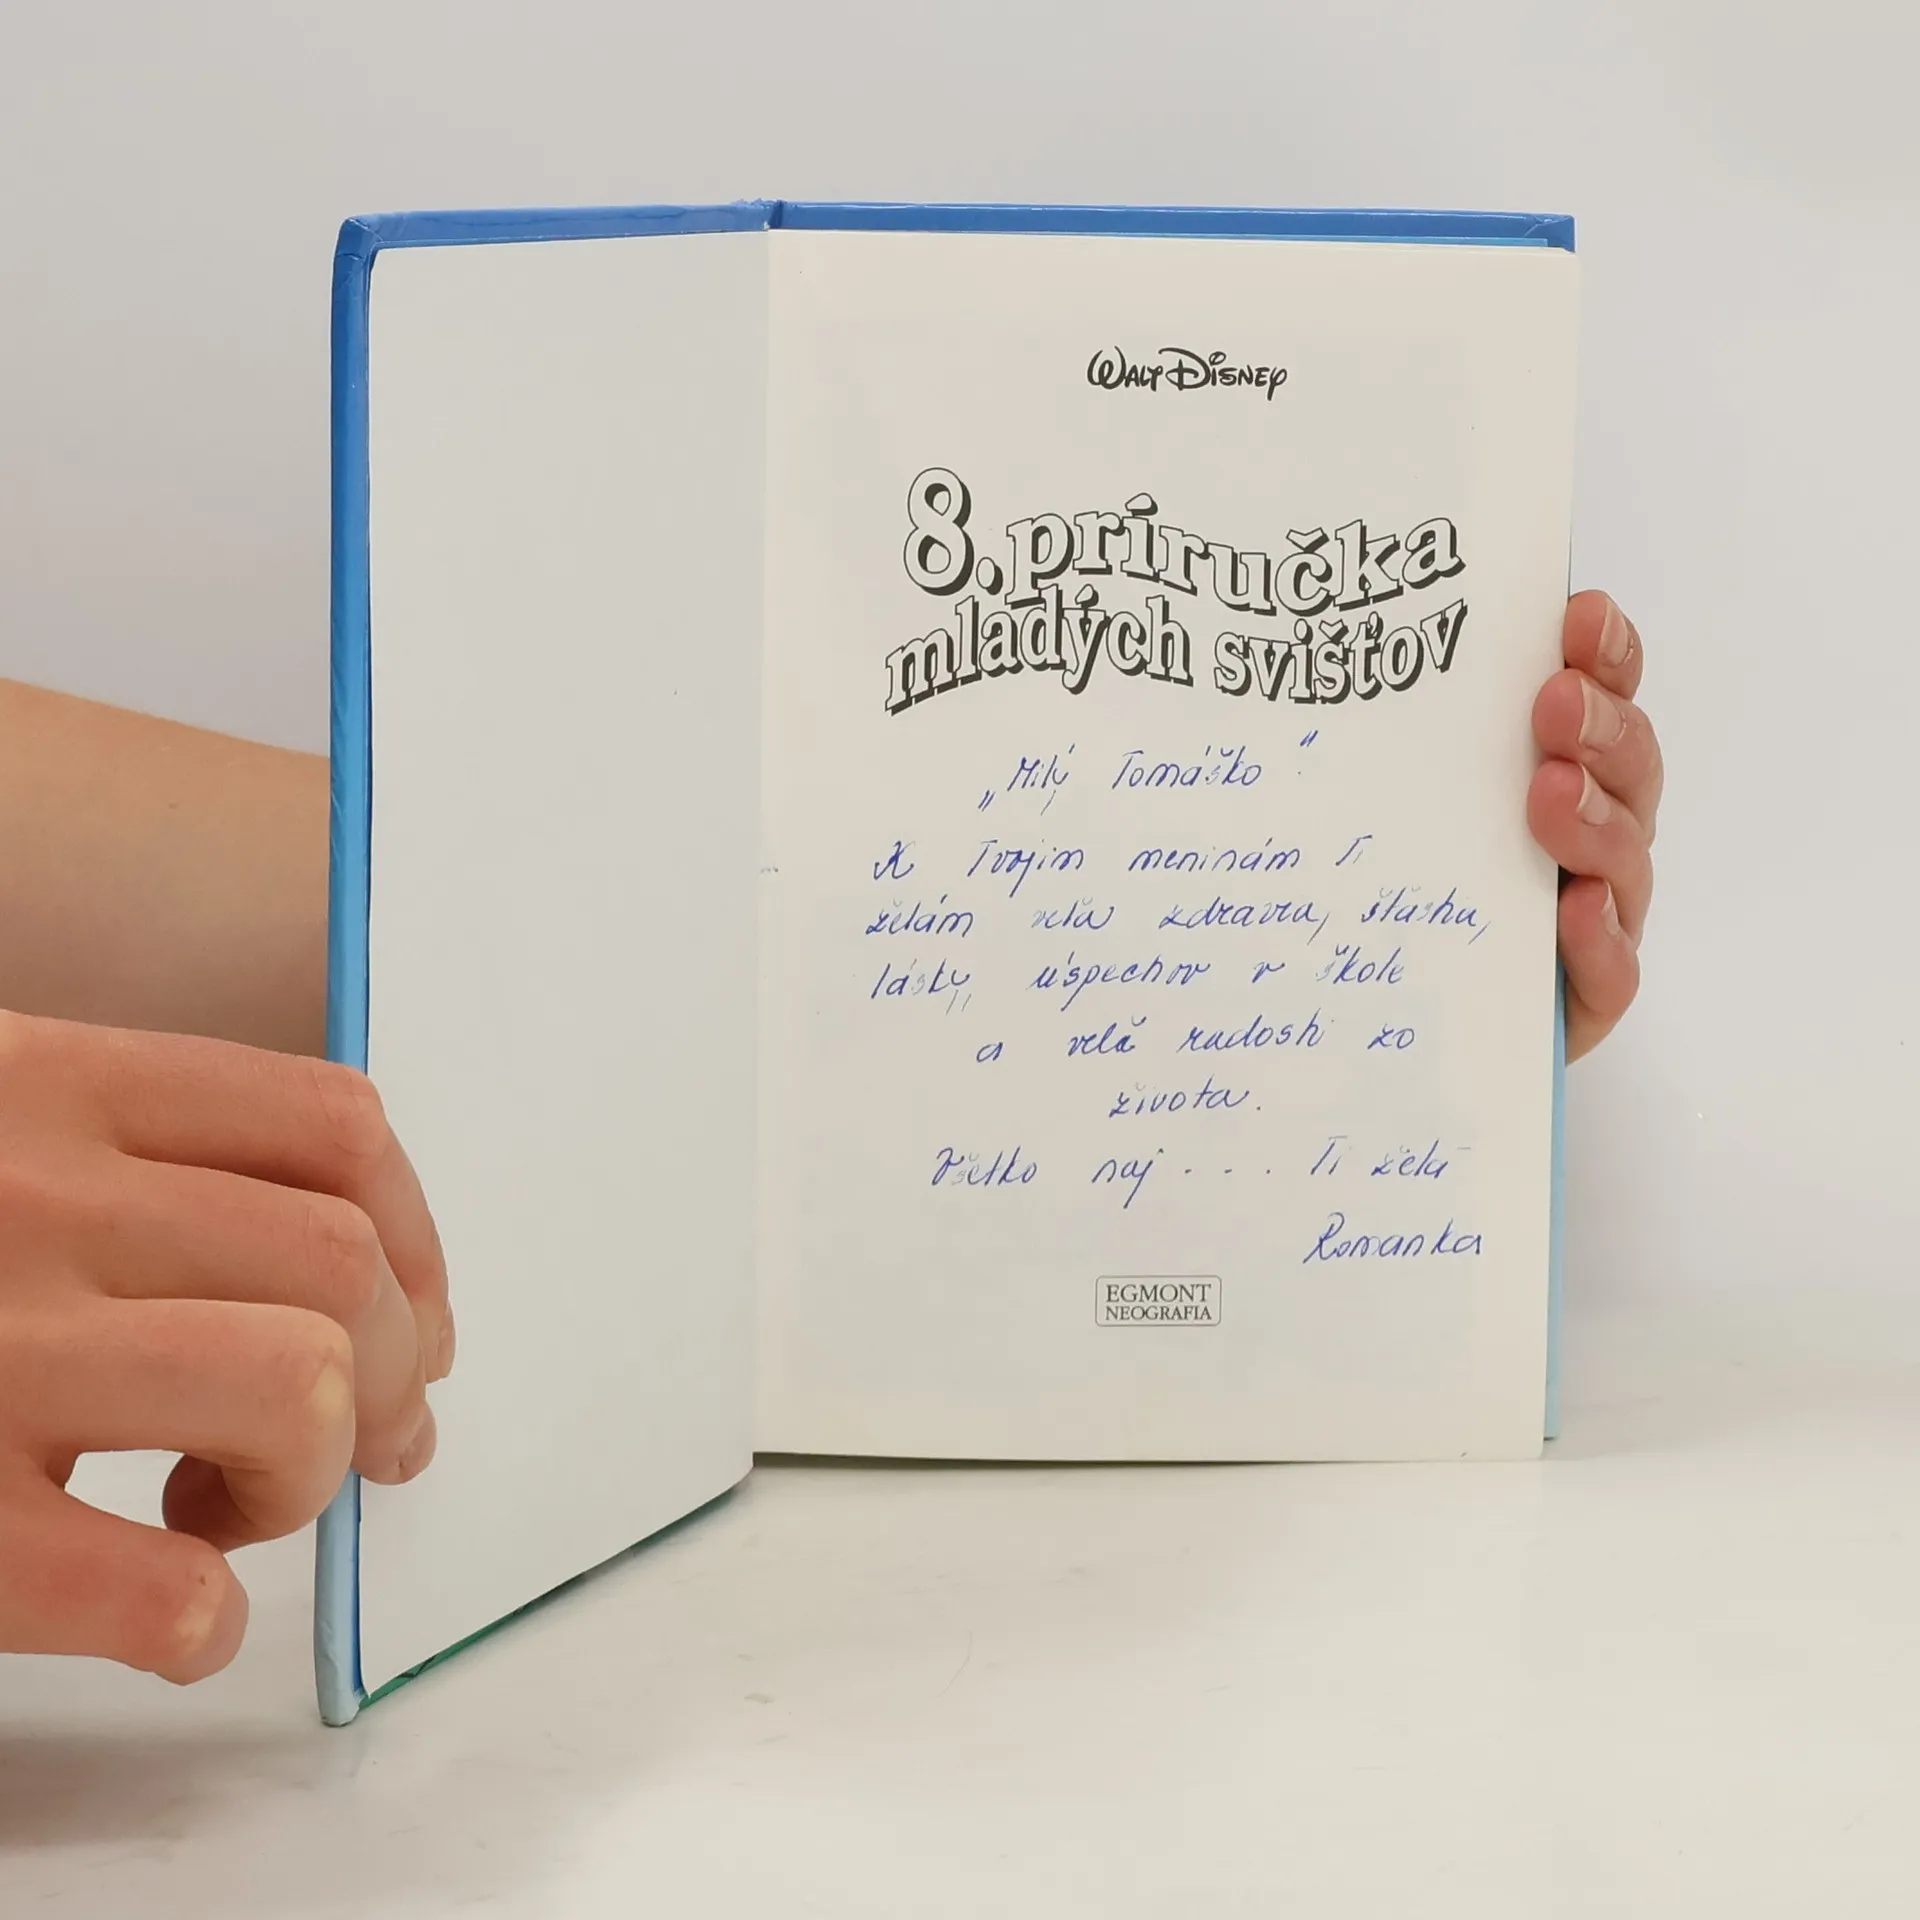 WALT DISNEY
8. príručka
mladých svišťov
„Milý Tomáško"
K Tvojim meninám Ti
želám veľa zdravia, šťastia,
lásky, úspechov v škole
a veľa radosti zo
života.
Všetko naj . . . Ti želá
Romanka
EGMONT
NEOGRAFIA